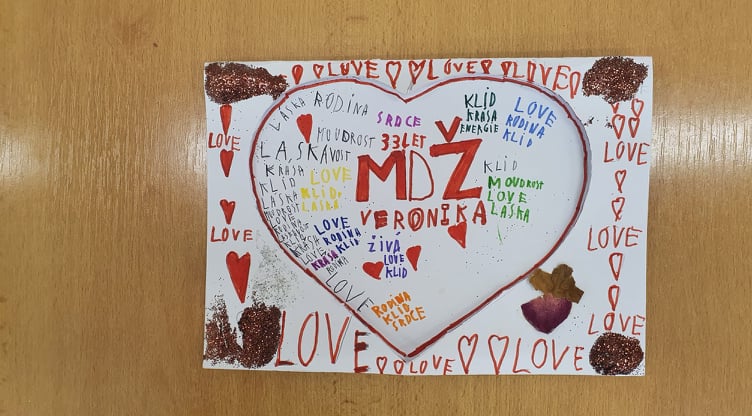 LOVE LOVE LOVE
LOVE
LOVE
LOVE
LOVE
LOVE
LOVE
LOVE
LOVE
LÁSKA
RODINA
SRDCE
KLID
KRÁSA
ENERGIE
LOVE
RODINA
KLID
MOUDROST
33 LET
LASKAVOST
MDŽ
VERONIKA
KRÁSA
KLID
LÁSKA
MOUDROST
LOVE
KLID
LÁSKA
KLID
MOUDROST
LOVE
LÁSKA
LOVE
RODINA
KLID
KRÁSA
ŽIVÁ
LOVE
KLID
RODINA
LOVE
RODINA
KLID
SRDCE